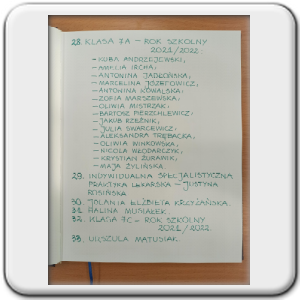 28. KLASA 7A – ROK SZKOLNY
2021/2022:
– KUBA ANDRZEJEWSKI,
– AMELIA IRCHA,
– ANTONINA JADROŃSKA,
– MARCELINA JÓZEFOWICZ,
– ANTONINA KOWALSKA,
– ZOFIA MARSZEWSKA,
– OLIWIA MISTRZAK,
– BARTOSZ PIERZCHLEWICZ,
– JAKUB RZEŹNIK,
– JULIA SKARCEWICZ,
– ALEKSANDRA TRĘBACKA,
– OLIWIA WINKOWSKA,
– NICOLA WŁODARCZYK,
– KRYSTIAN ŻURAWIK,
– MAJA ŻYLIŃSKA.
29. INDYWIDUALNA SPECJALISTYCZNA
PRAKTYKA LEKARSKA – JUSTYNA
ROSIŃSKA
30. JOLANTA ELŻBIETA KRZYŻAŃSKA.
31. HALINA MUSIAŁEK
32. KLASA 7C – ROK SZKOLNY
2021/2022
33. URSZULA MATUSIAK